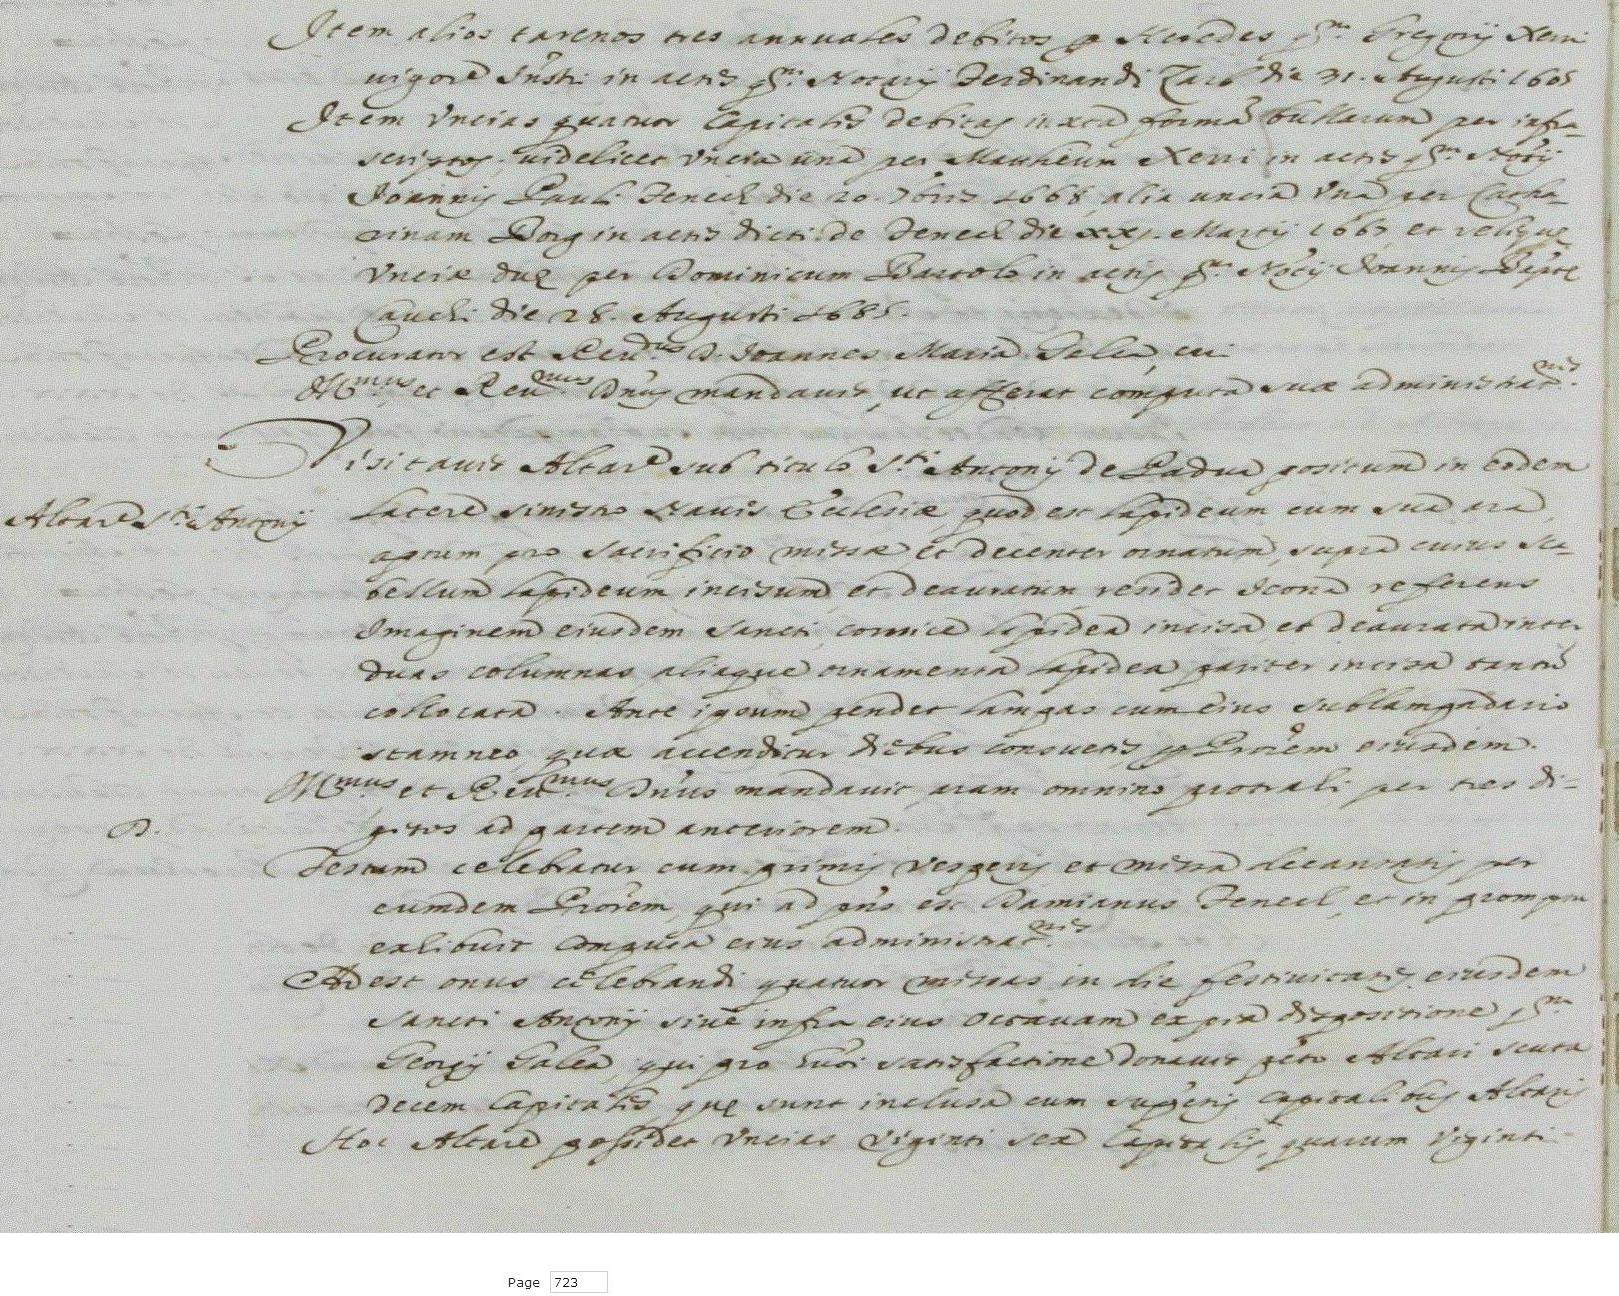 Item alios tarenos tres annuales debitos p Heredes qm. Gregorij Xerri
uigore Insti. in actis qm. Notarij Ferdinandi Zarb die 31. Augusti 1605
Item Vncias quatuor Capitalis debitas iuxta formā bullarum per infra-
scriptos, uidelicet Vncia una per Mattheum Xerri in actis qm. Notij
Joannis Pauli Fenech die 20. 7bris 1668, alia uncia Vna per Catha-
rinam Borg in actis dicti de Fenech die xxj. Martij 1665 et reliquę
Vnciæ duę per Dominicum Bartolo in actis qm. Notij Joannis Bapte
Cauchi die 28. Augusti 1685.
Procurator est Reudus D. Joannes Maria Galea, cui
Illmus. et Reumus. Dnus mandauit, ut afferat computa suæ administratnis.
Visitauit Altare sub titulo Sti. Antonij de Padua positum in eodem
Altare Sti Antonij
latere sinistro Nauis Ecclesiæ, quod est lapideum cum sua ara
aptum pro sacrificio missæ, et decenter ornatum, supra cuius sca-
bellum lapideum incisum, et deauratum residet Icona referens
Imaginem eiusdem Sancti, cornice lapidea incisa et deaurata inter
duas columnas aliaque ornamenta lapidea pariter incisa tantū
collocata. Ante ipsum pendet lampas cum eius sublampadario
stamneo, quæ accenditur diebus consuetis p Prorem eiusdem.
Illmus. et Reumus. Dnus mandauit aram omnino protrahi per tres di-
D.
gitos ad partem anteriorem.
Festum celebratur cum primis vesperis et missa decantatis per
eumdem Prorem, qui ad pns est Damianus Fenech, et in promptu
exhibuit computa eius administratnis.
Adest onus celebrandi quatuor missas in die festiuitatis eiusdem
Sancti Antonij siue infra eius Octauam ex pia dispositione qm.
Georgij Galea, qui pro satisfactione donauit Altari scuta
decem Capitalis, quę sunt inclusa cum supis capitalibus Altaris
Hoc Altare possidet Vncias viginti sex Capitalis, quarum viginti
Page 723